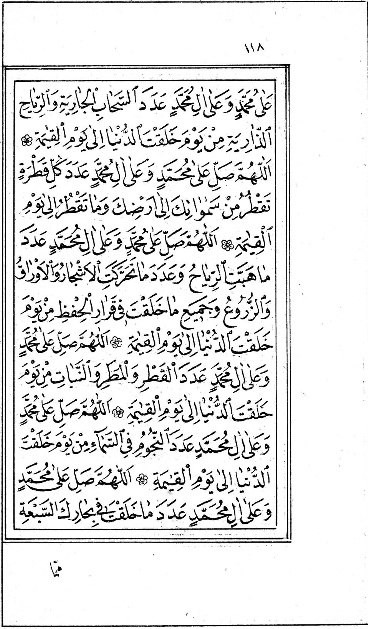 ١١٨
عَلَىٰ مُحَمَّدٍ وَعَلَىٰ اٰلِ مُحَمَّدٍ عَدَدَ السَّحَابِ الْجَارِيَةِ وَالرِّيَاحِ
الذَّارِيَةِ مِنْ يَوْمِ خَلَقْتَ الدُّنْيَا اِلَىٰ يَوْمِ الْقِيٰمَةِ ۞
اَللّٰهُمَّ صَلِّ عَلَىٰ مُحَمَّدٍ وَعَلَىٰ اٰلِ مُحَمَّدٍ عَدَدَ كُلِّ قَطْرَةٍ
تَقْطُرُ مِنْ سَمٰوَاتِكَ اِلَىٰ اَرْضِكَ وَمَا تَقْطُرُ اِلَىٰ يَوْمِ
الْقِيٰمَةِ ۞ اَللّٰهُمَّ صَلِّ عَلَىٰ مُحَمَّدٍ وَعَلَىٰ اٰلِ مُحَمَّدٍ عَدَدَ
مَا هَبَّتِ الرِّيَاحُ وَعَدَدَ مَا تَحَرَّكَتِ الْاَشْجَارُ وَالْاَوْرَاقُ
وَالزُّرُوعُ وَجَمِيعِ مَا خَلَقْتَ فِي قَرَارِ الْحِفْظِ مِنْ يَوْمِ
خَلَقْتَ الدُّنْيَا اِلَىٰ يَوْمِ الْقِيٰمَةِ ۞ اَللّٰهُمَّ صَلِّ عَلَىٰ مُحَمَّدٍ
وَعَلَىٰ اٰلِ مُحَمَّدٍ عَدَدَ الْقَطْرِ وَالْمَطَرِ وَالنَّبَاتِ مِنْ يَوْمِ
خَلَقْتَ الدُّنْيَا اِلَىٰ يَوْمِ الْقِيٰمَةِ ۞ اَللّٰهُمَّ صَلِّ عَلَىٰ مُحَمَّدٍ
وَعَلَىٰ اٰلِ مُحَمَّدٍ عَدَدَ النُّجُومِ فِي السَّمَاءِ مِنْ يَوْمِ خَلَقْتَ
الدُّنْيَا اِلَىٰ يَوْمِ الْقِيٰمَةِ ۞ اَللّٰهُمَّ صَلِّ عَلَىٰ مُحَمَّدٍ
وَعَلَىٰ اٰلِ مُحَمَّدٍ عَدَدَ مَا خَلَقْتَ فِي بِحَارِكَ السَّبْعَةِ
مِمَّا